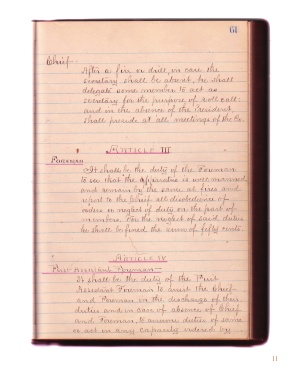 61
Chief—
After a fire or drill, in case the
secretary shall be absent, he shall
delegate some member to act as
secretary for the purpose of roll call:
and in the absence of the President
shall preside at all meetings of the Co.
ARTICLE III
Foreman
It shall be the duty of the Foreman
to see that the apparatus is well manned
and remain by the same at fires and
report to the Chief all disobedience of
orders or neglect of duty on the part of
members. For the neglect of said duties
he shall be fined the sum of fifty cents.
ARTICLE IV
First Assistant Foreman—
It shall be the duty of the First
Assistant Foreman to assist the Chief
and Foreman in the discharge of their
duties and in case of absence of Chief
and Foreman, to assume duties of same
or act in any capacity ordered by
11